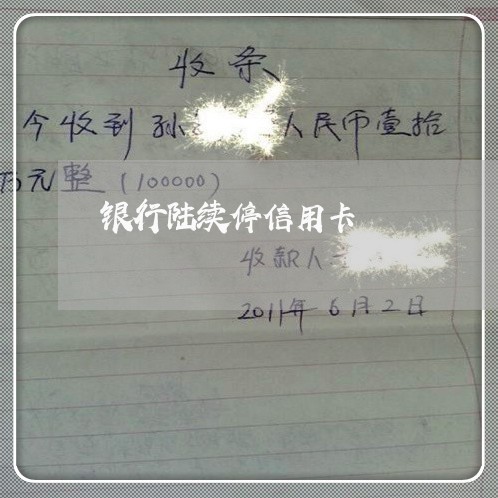 收条
今收到孙 人民币壹拾
万元整（100000）
银行陆续停信用卡
收款人
2011年6月2日